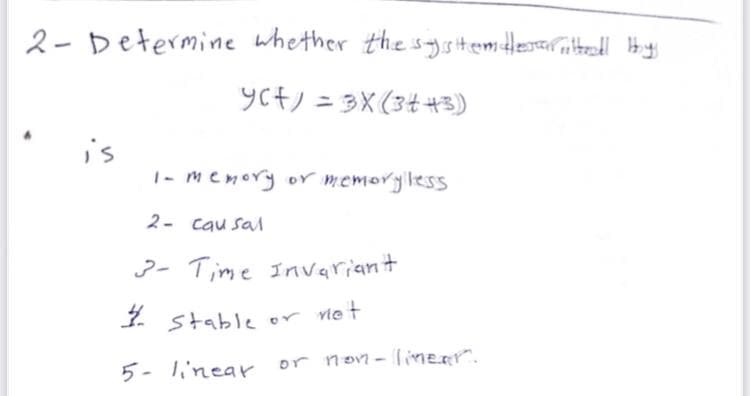 2- Determine whether the system described by
y(t) = 3X(3t+3)
is
1- memory or memoryless
2- causal
3- Time Invariant
4. stable or not
5- linear or non-linear.